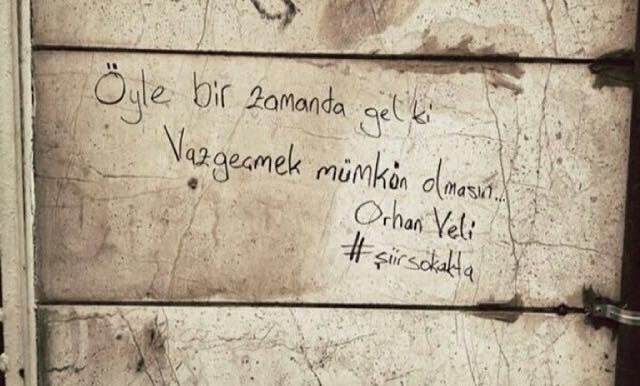 Öyle bir zamanda gel ki
Vazgeçmek mümkün olmasın...
Orhan Veli
#şiirsokakta